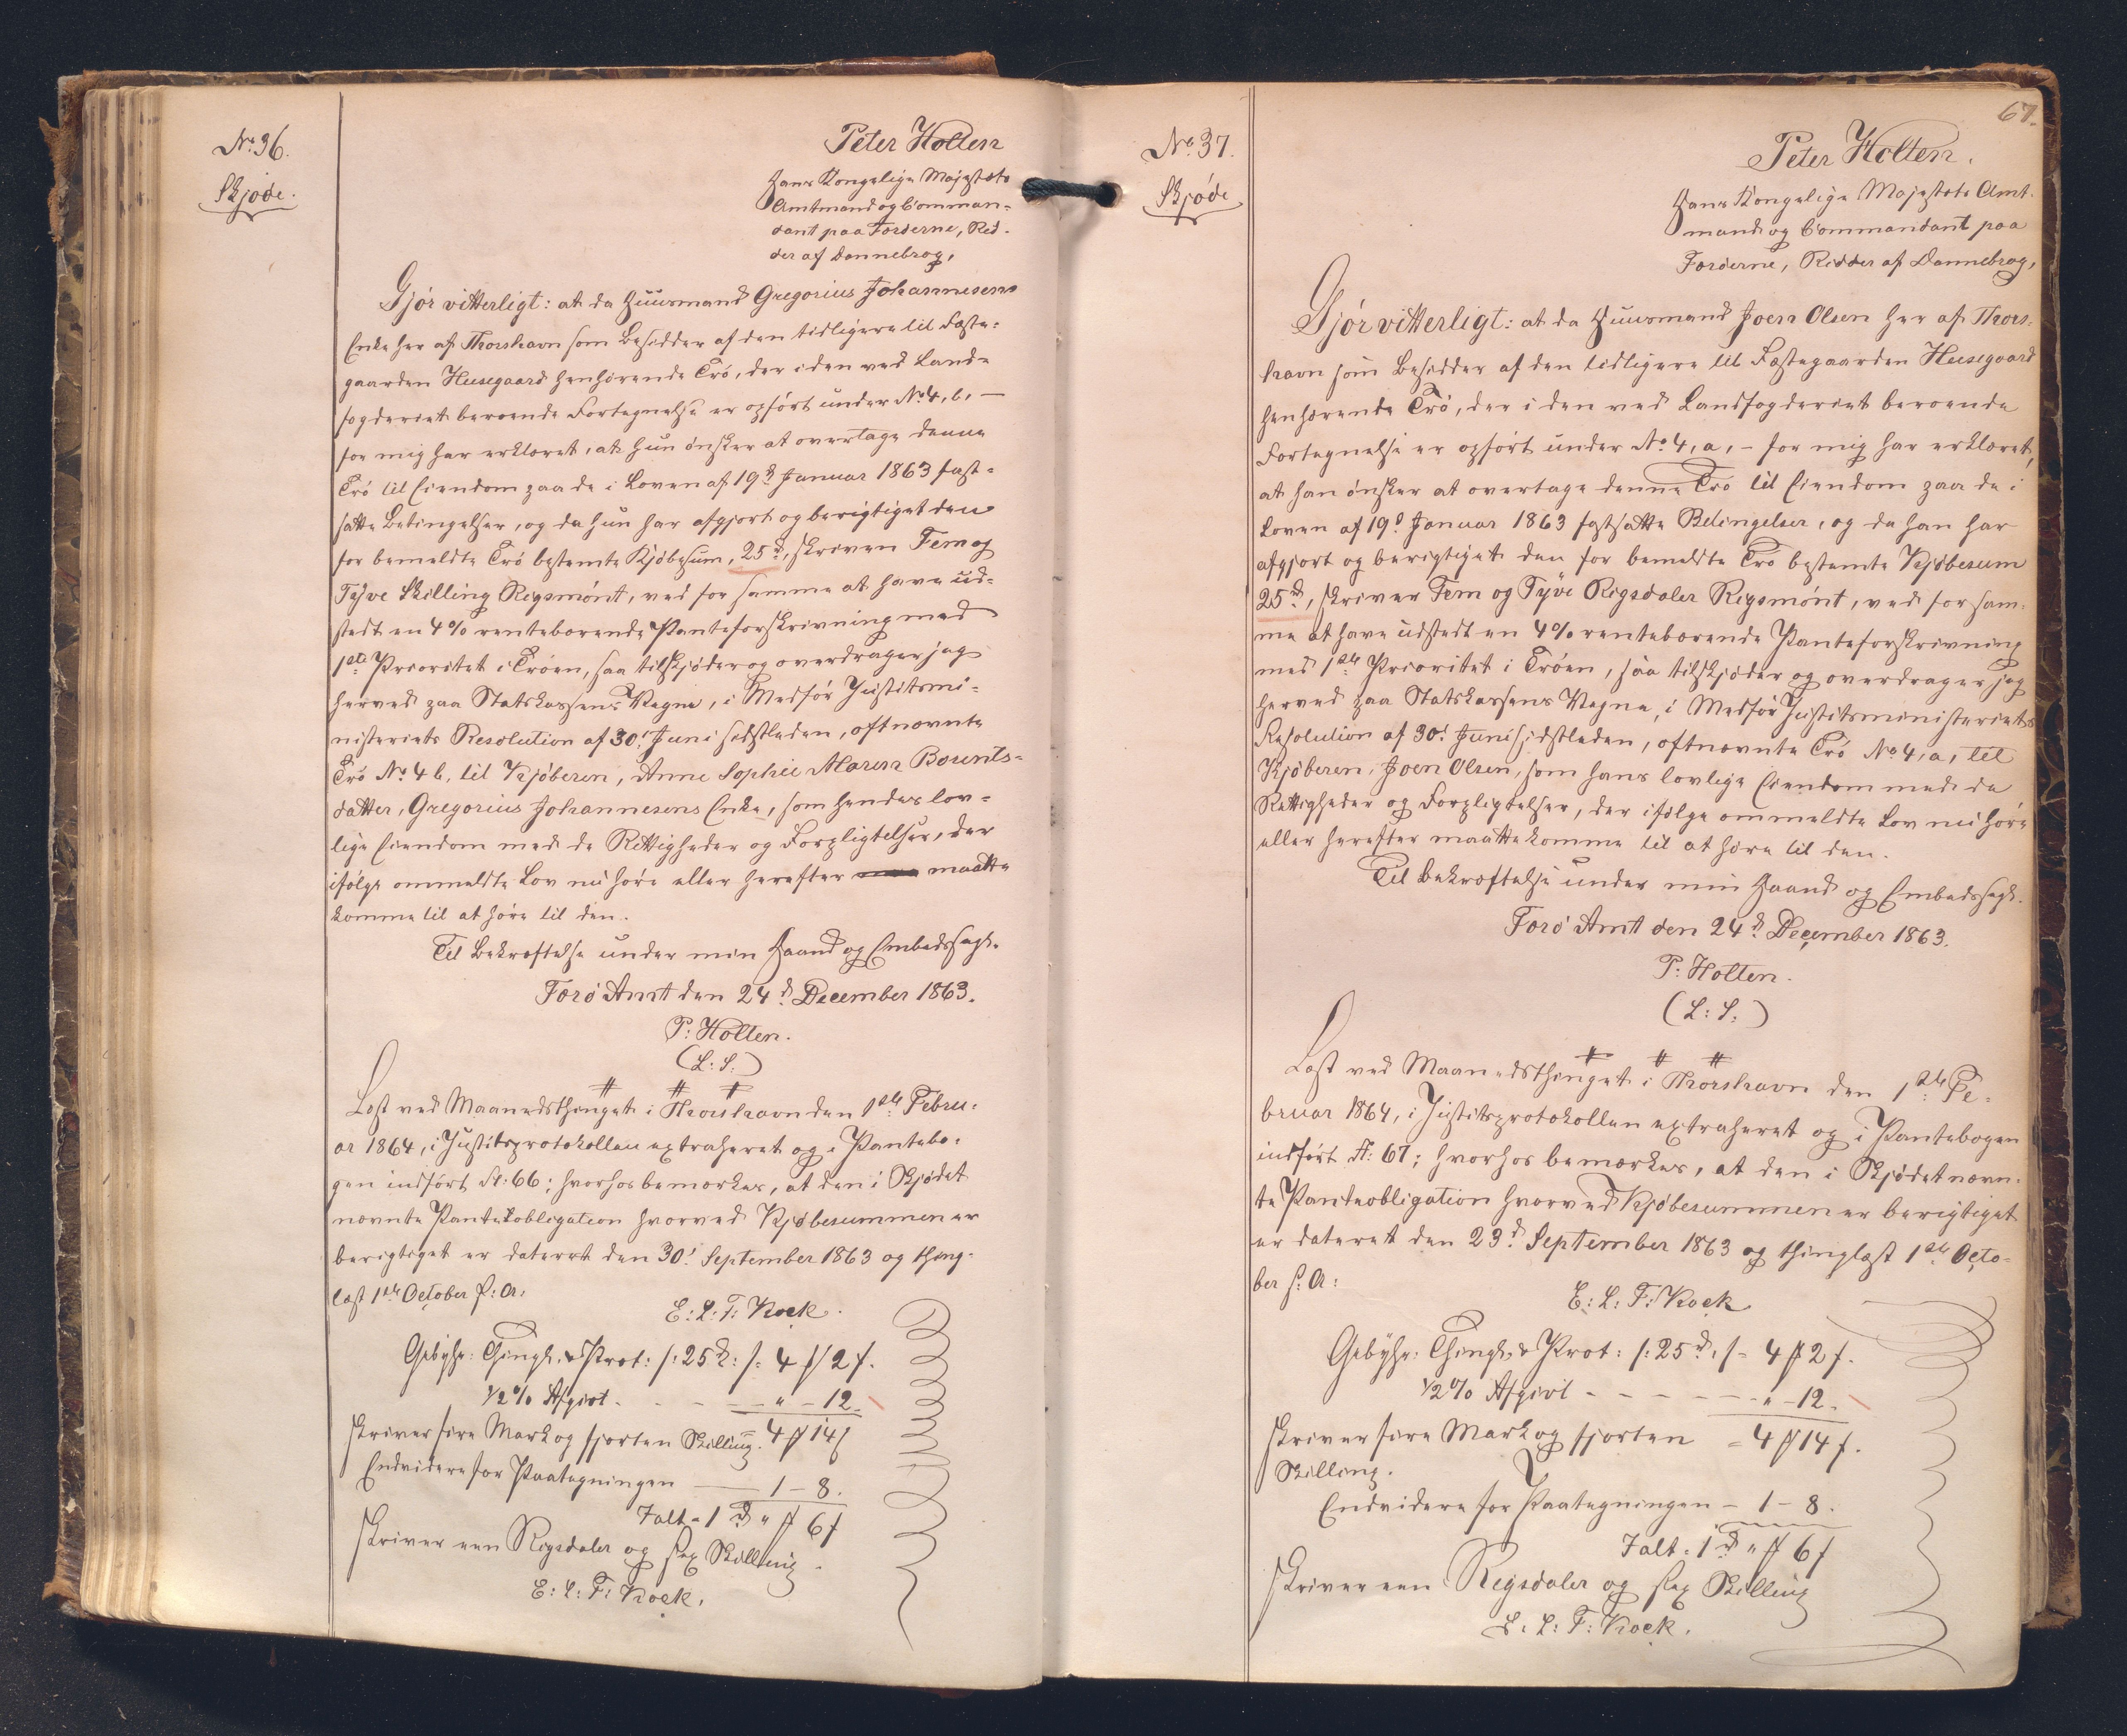 No. 36.
Skjøde.
Peter Holten
Hans Kongelige Majestæts
Amtmand og Comman=
dant paa Færøerne, Rid=
der af Dannebrog,
Gjør vitterligt: at da Huusmand Gregorius Johannesens
Enke her af Thorshavn som Besidder af den tidligere til Fæste=
gaarden Husegaard henhørende Trø, der i den ved Land=
fogderiet beroende Fortegnelse er opført under No. 4, b, —
for mig har erklæret, at hun ønsker at overtage denne
Trø til Eiendom paa de i Loven af 19d Januar 1863 fast=
satte Betingelser, og da hun har afgjort og berigtiget den
for bemeldte Trø bestemte Kjøbesum, 25d, skriven Fem og
Tyve Skilling Rigsmønt, ved for samme at have ud=
stedt en 4% rentebærende Panteforskrivning med
1ste Prioritet i Trøen, saa tilskjøder og overdrager jeg
herved paa Statskassens Vegne, i Medfør Justitsmi=
nisteriets Resolution af 30' Juni sidstleden, oftnævnte
Trø No. 4 b, til Kjøberen, Anne Sophie Maren Borents=
datter, Gregorius Johannesens Enke, som hendes lov=
lige Eiendom med de Rettigheder og Forpligtelser, der
ifølge ommeldte Lov nu høre eller herefter maatte
komme til at høre til den.
Til Bekræftelse under min Haand og Embedssegl.
Færø Amt den 24d December 1863.
P: Holten.
(L: S:)
Læst ved Maanedsthinget i Thorshavn den 1ste Febru=
ar 1864, i Justitsprotokollen extraheret og i Pantebo=
gen indført Fl: 66; hvorhos bemærkes, at den i Skjødet
nævnte Panteobligation hvorved Kjøbesummen er
berigtiget er dateret den 30' September 1863 og thing=
læst 1ste October s: A:
E: L: F: Kock.
Gebyhr: Thingl. & Prot: /: 25d: /= 4 ₰ 2 s.
1/2% Afgivt - - - - " - 12.
skriver fire Mark og fjorten Skilling. 4 ₰ 14 s
Endvidere for Paategningen — 1 - 8.
Ialt = 1d " ₰ 6 s
skriver een Rigsdaler og sex Skilling.
E: L: F: Kock.
67.
No. 37.
Skjøde
Peter Holten.
Hans Kongelige Majestæts Amt=
mand og Commandant paa
Færøerne, Ridder af Dannebrog,
Gjør vitterligt: at da Huusmand Joen Olsen her af Thors=
havn som Besidder af den tidligere til Fæstegaarden Husegaard
henhørende Trø, der i den ved Landfogderiet beroende
Fortegnelse er opført under No. 4, a, - for mig har erklæret,
at han ønsker at overtage denne Trø til Eiendom paa de i
Loven af 19d Januar 1863 fastsatte Betingelser, og da han har
afgjort og berigtiget den for bemeldte Trø bestemte Kjøbesum
25d, skriver Fem og Tyve Rigsdaler Rigsmønt, ved for sam=
me at have udstedt en 4% rentebærende Panteforskrivning
med 1ste Prioritet i Trøen, saa tilskjøder og overdrager jeg
herved paa Statskassens Vegne, i Medfør Justitsministeriets
Resolution af 30' Juni sidstleden, oftnævnte Trø No. 4, a, til
Kjøberen, Joen Olsen, som hans lovlige Eiendom med de
Rettigheder og Forpligtelser, der ifølge ommeldte Lov nu høre
eller herefter maatte komme til at høre til den.
Til Bekræftelse under min Haand og Embedssegl.
Færø Amt den 24d December 1863.
P: Holten.
(L: S:)
Læst ved Maanedsthinget i Thorshavn den 1ste Fe=
bruar 1864, i Justitsprotokollen extraheret og i Pantebogen
indført Fl: 67; hvorhos bemærkes, at den i Skjødet nævn=
te Panteobligation hvorved Kjøbesummen er berigtiget
er dateret den 23d September 1863 og thinglæst 1ste Octo=
ber s: A:
E: L: F: Kock
Gebyhr: Thingl. & Prot: /: 25d: /= 4 ₰ 2 s.
1/2% Afgivt - - - - - " - 12.
skriver fire Mark og fjorten = 4 ₰ 14 s.
Skilling.
Endvidere for Paategningen - 1 - 8.
Ialt = 1d " ₰ 6 s
skriver een Rigsdaler og sex Skilling
E: L: F: Kock.